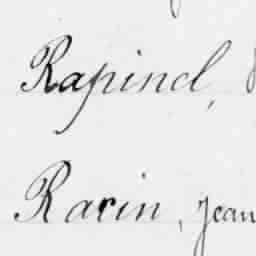 Rapinel,
Rarin, Jean